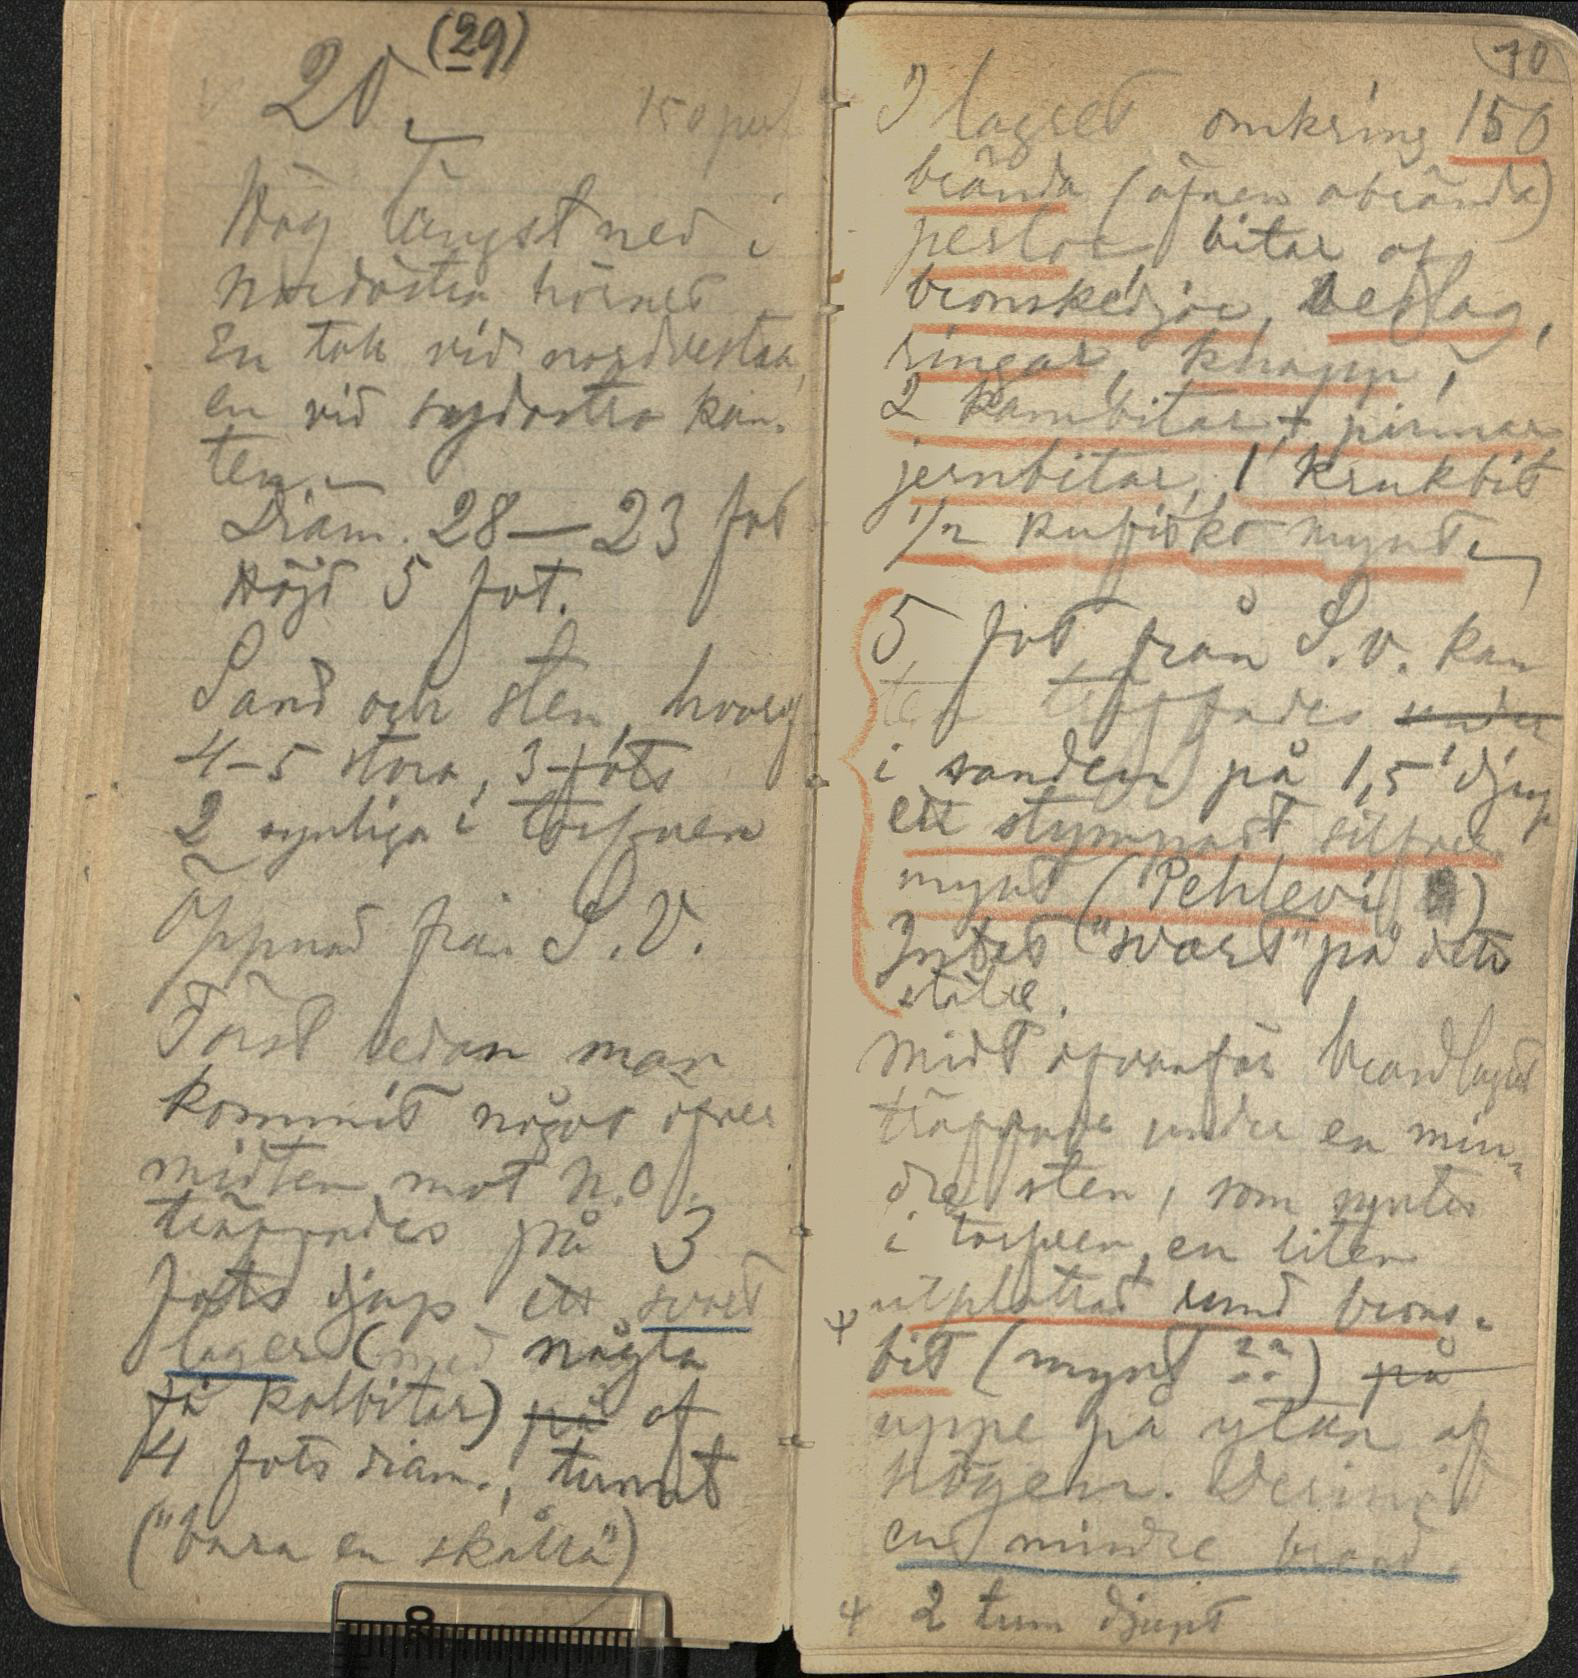 (29)
20.
150 perl
Hög längst ned i
nordöstra hörnet
En tak vid nordvestra,
en vid sydostra kan-
ten.
Diam. 28—23 fot
Höjd 5 fot.
Sand och sten, hvaraf
4-5 stora, 3-fots
2 synliga i torfven
Öppnad från S.V.
Först sedan man
kommit något öfver
midten mot N.O.
träffades på 3
fots djup ett svart
lager (med några
få kolbitar) på af
4 fots diam., tunnt
("bara en skålla")
10
I lagret omkring 150
brända (äfven obrända)
perlor, bitar af
bronskedjor, beslag,
ringar, knapp,
2 kambitar +
jernbitar, 1 krukbit
1/2 kufiskt mynt.
5 fot från S.V. kan
ten träffades under
i sanden på 1,5' djup
ett stympadt silfver
mynt (Pehlevi)
Intet "svart" på detta
ställe.
Midt ofvanför brandlagret
träffades under en min-
dre sten, som syntes
i torfven, en liten
utplattad rund brons-
bit (mynt ??) på
uppe på ytan af
högen. Derinvid
en mindre brand.
+ 2 tum djupt